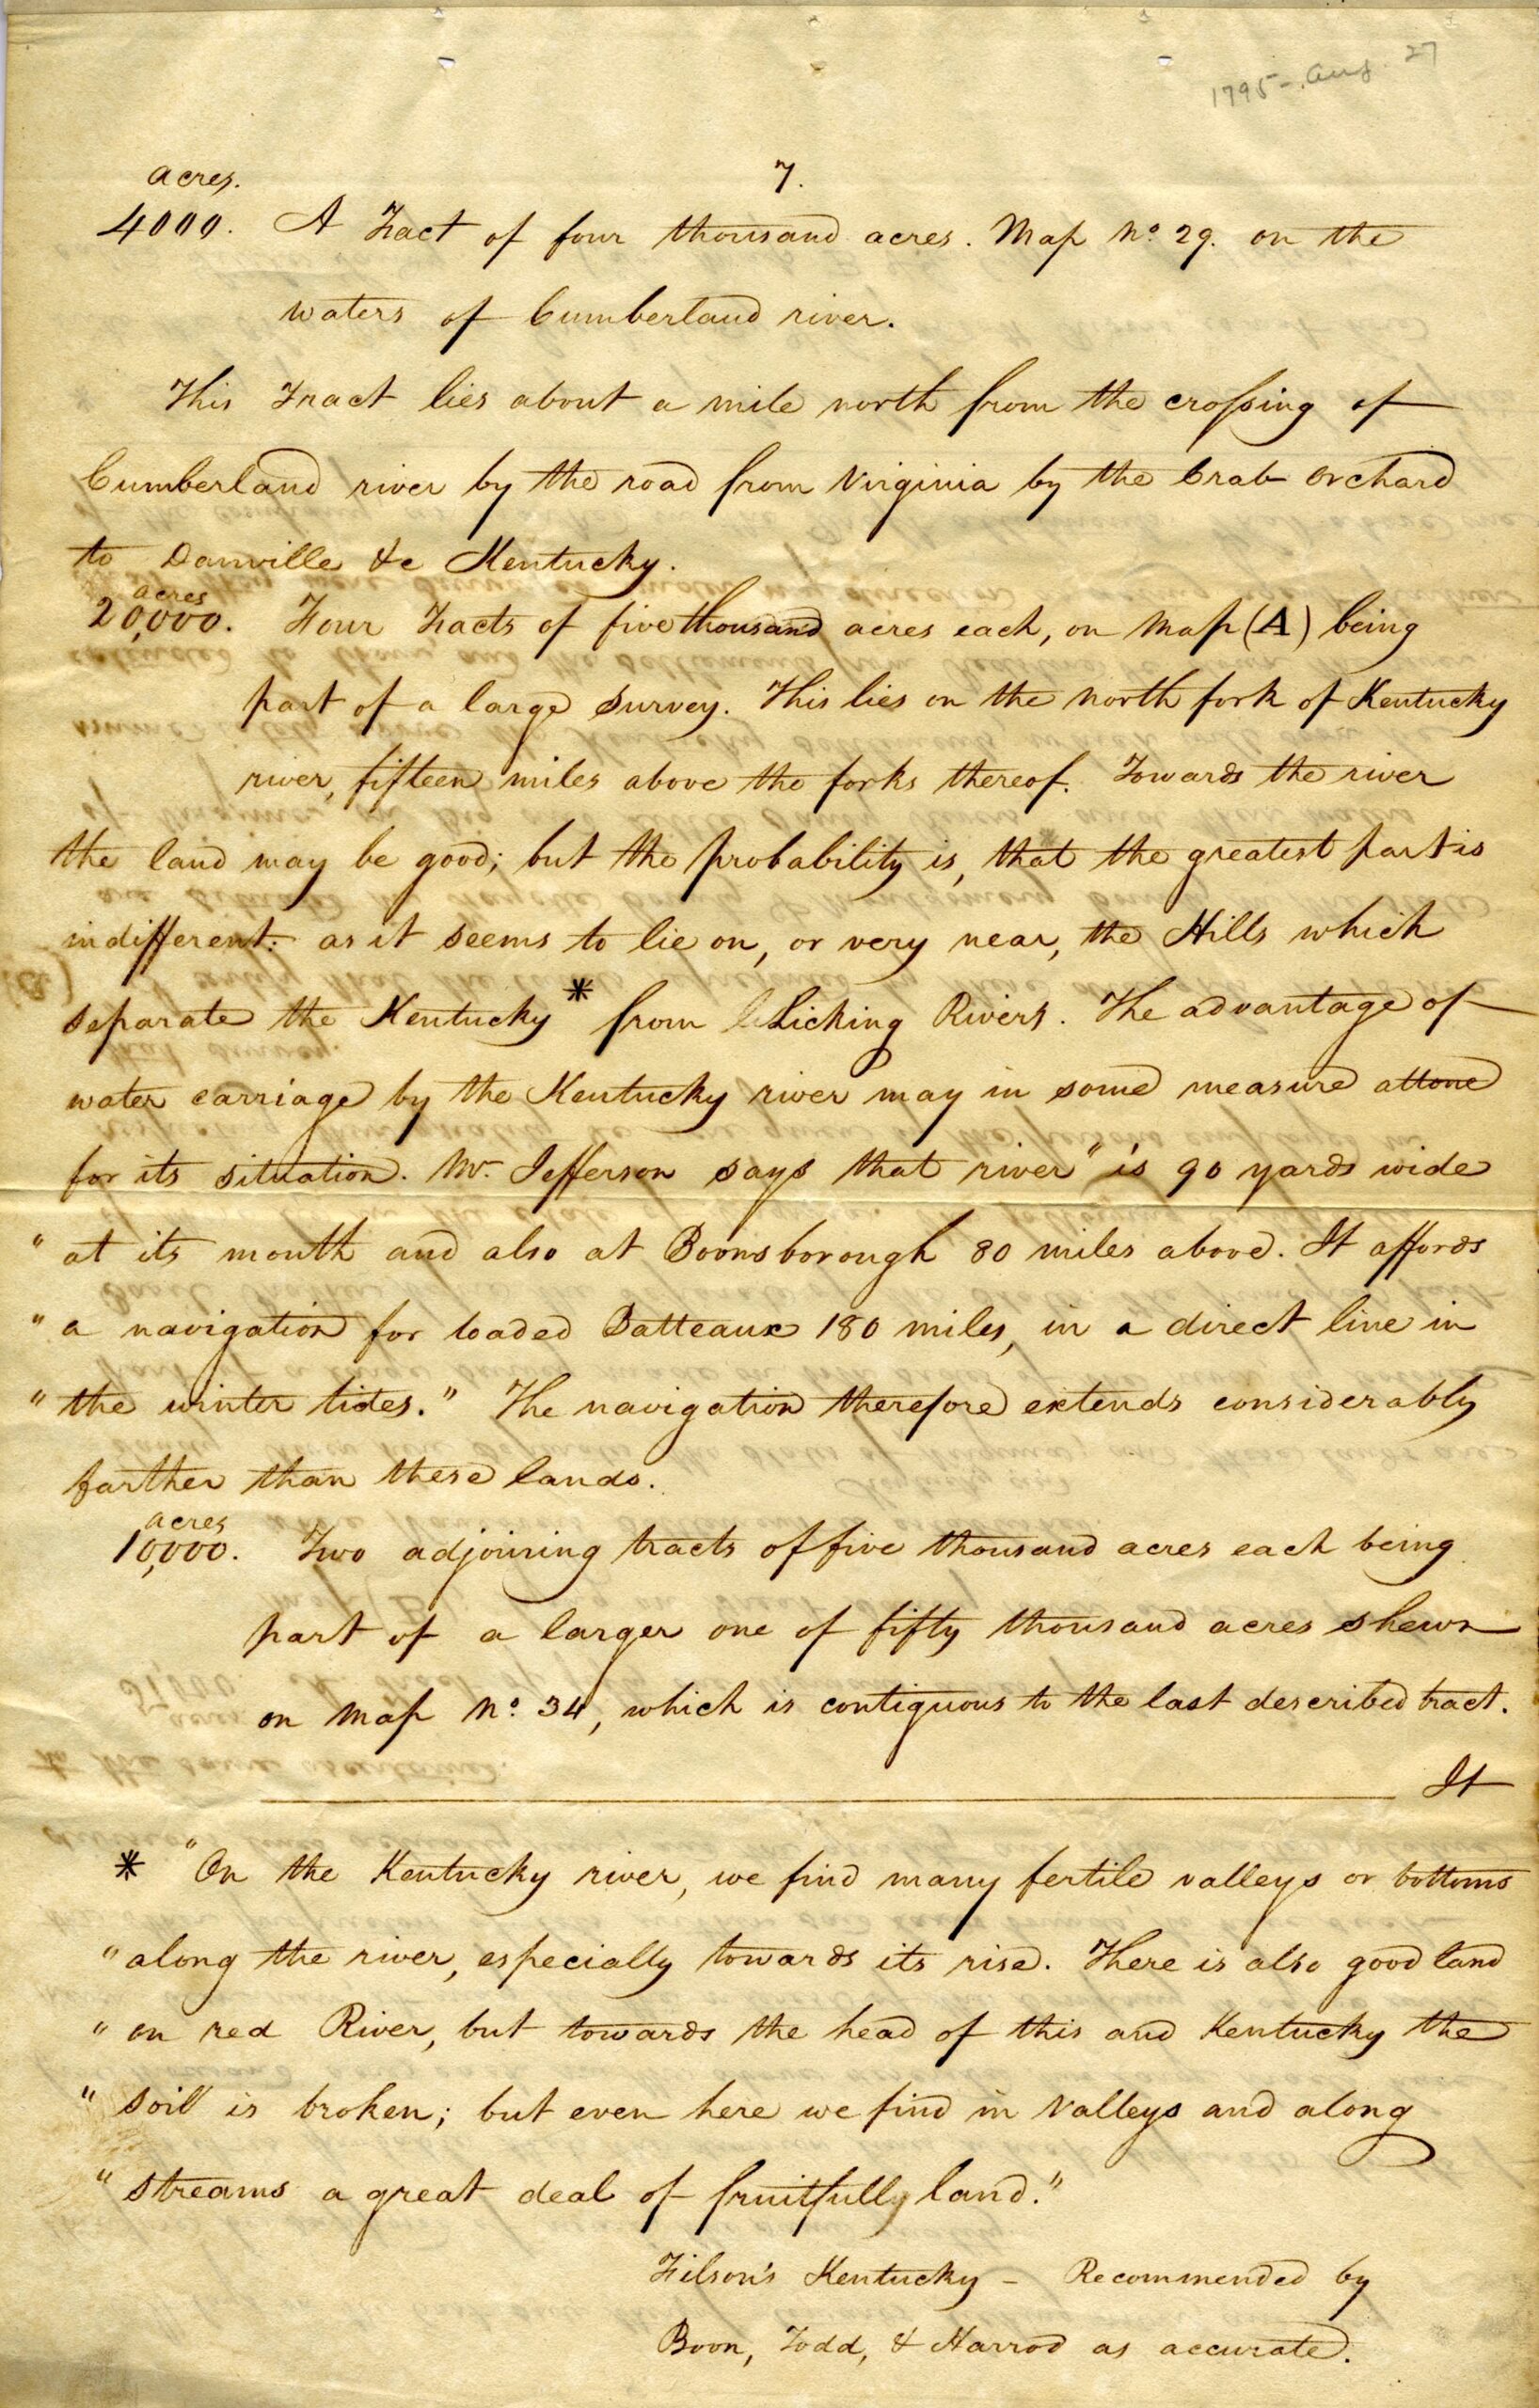 1795-. Aug. 27
7.
acres.
4000. A Tract of four thousand acres. Map No. 29. on the
waters of Cumberland river.
This Tract lies about a mile north from the crossing of
Cumberland river by the road from Virginia by the Crab Orchard
to Danville &c Kentucky.
acres
20,000. Four Tracts of five thousand acres each, on Map (A) being
part of a large survey. This lies on the north fork of Kentucky
river, fifteen miles above the forks thereof. Towards the river
the land may be good; but the probability is, that the greatest part is
indifferent: as it seems to lie on, or very near, the Hills which
separate the Kentucky * from Licking Rivers. The advantage of
water carriage by the Kentucky river may in some measure attone
for its situation. Mr. Jefferson says that river "is 90 yards wide
" at its mouth and also at Boonsborough 80 miles above. It affords
" a navigation for loaded Batteaux 180 miles, in a direct line in
" the winter tides." The navigation therefore extends considerably
farther than these lands.
acres
10,000. Two adjoining tracts of five thousand acres each being
part of a larger one of fifty thousand acres shewn
on Map No. 34, which is contiguous to the last described tract.
It
* "On the Kentucky river, we find many fertile valleys or bottoms
" along the river, especially towards its rise. There is also good land
" on red River, but towards the head of this and Kentucky the
" soil is broken; but even here we find in Valleys and along
" streams a great deal of fruitfully land."
Filson's Kentucky – Recommended by
Boon, Todd, & Harrod as accurate.